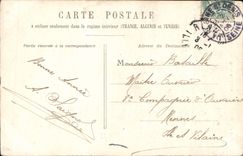 CARTE POSTALE
à utiliser seulement dans le régime intérieur (FRANCE, ALGÉRIE et TUNISIE)
Partie réservée à la correspondance
Adresse du destinataire
Bonne Année
Monsieur Bataille
Maître Ouvrier
Compagnie d'Ouvriers
Rennes
Ille et Vilaine